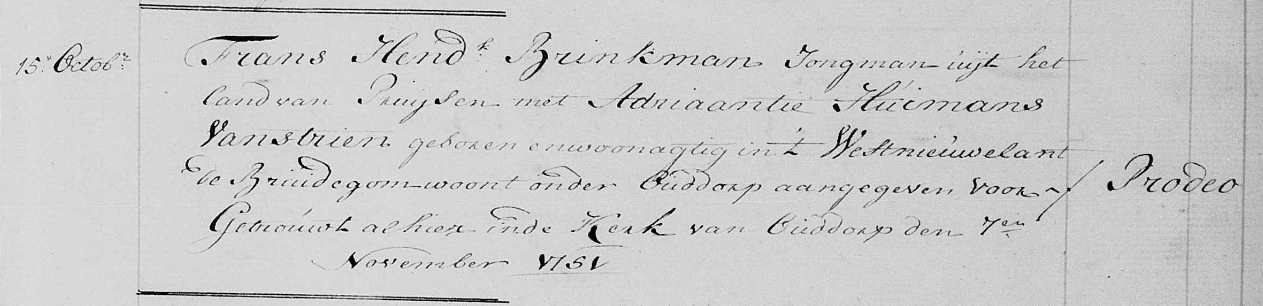 15: Octobr
Frans Hendk Brinkman Jongman uijt het
land van Pruijsen met Adriaantie Húimans
Vanstrien geboren enwoonagtig in 't Westnieuwelant
de Bruidegom woont onder Oúddorp aangegeven voor
Prodeo
Getroúwt alhier inde Kerk van Oúddorp den 7en
November